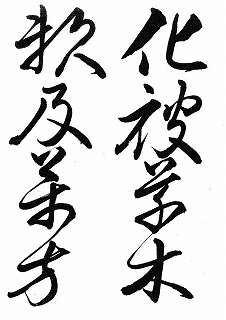 化被草木
頼及萬方